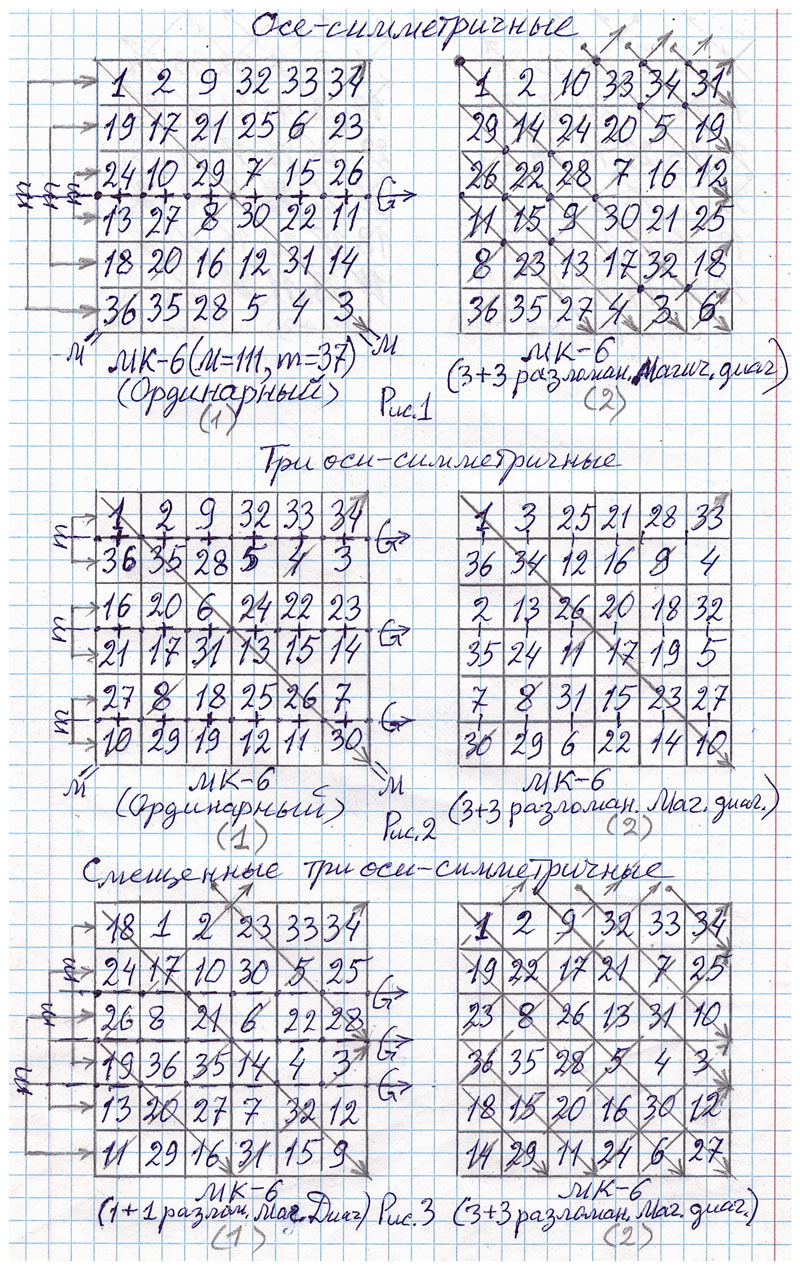 Осе-симметричные
1 2 9 32 33 34
19 17 21 25 6 23
24 10 29 7 15 26
13 27 8 30 22 11
18 20 16 12 31 14
36 35 28 5 4 3
м м
МК-6 (М=111, m=37)
(Ординарный)
(1)
1 1 1
1 2 10 33 34 31
29 14 24 20 5 19
26 22 28 7 16 12
11 15 9 30 21 25
8 23 13 17 32 18
36 35 27 4 3 6
МК-6
(3+3 разломан. Магич. диаг)
(2)
Рис.1
Три оси-симметричные
1 2 9 32 33 34
36 35 28 5 4 3
16 20 6 24 22 23
21 17 31 13 15 14
27 8 18 25 26 7
10 29 19 12 11 30
м м
МК-6
(Ординарный)
(1)
1 3 25 21 28 33
36 34 12 16 9 4
2 13 26 20 18 32
35 24 11 17 19 5
7 8 31 15 23 27
30 29 6 22 14 10
МК-6
(3+3 разломан. Маг. диаг.)
(2)
Рис.2
Смещенные три оси-симметричные
18 1 2 23 33 34
24 17 10 30 5 25
26 8 21 6 22 28
19 36 35 14 4 3
13 20 27 7 32 12
11 29 16 31 15 9
МК-6
(1+1 разлом. Маг. Диаг)
(1)
1 2 9 32 33 34
19 22 17 21 7 25
23 8 26 13 31 10
36 35 28 5 4 3
18 15 20 16 30 12
14 29 11 24 6 27
МК-6
(3+3 разломан. Маг. диаг.)
(2)
Рис.3